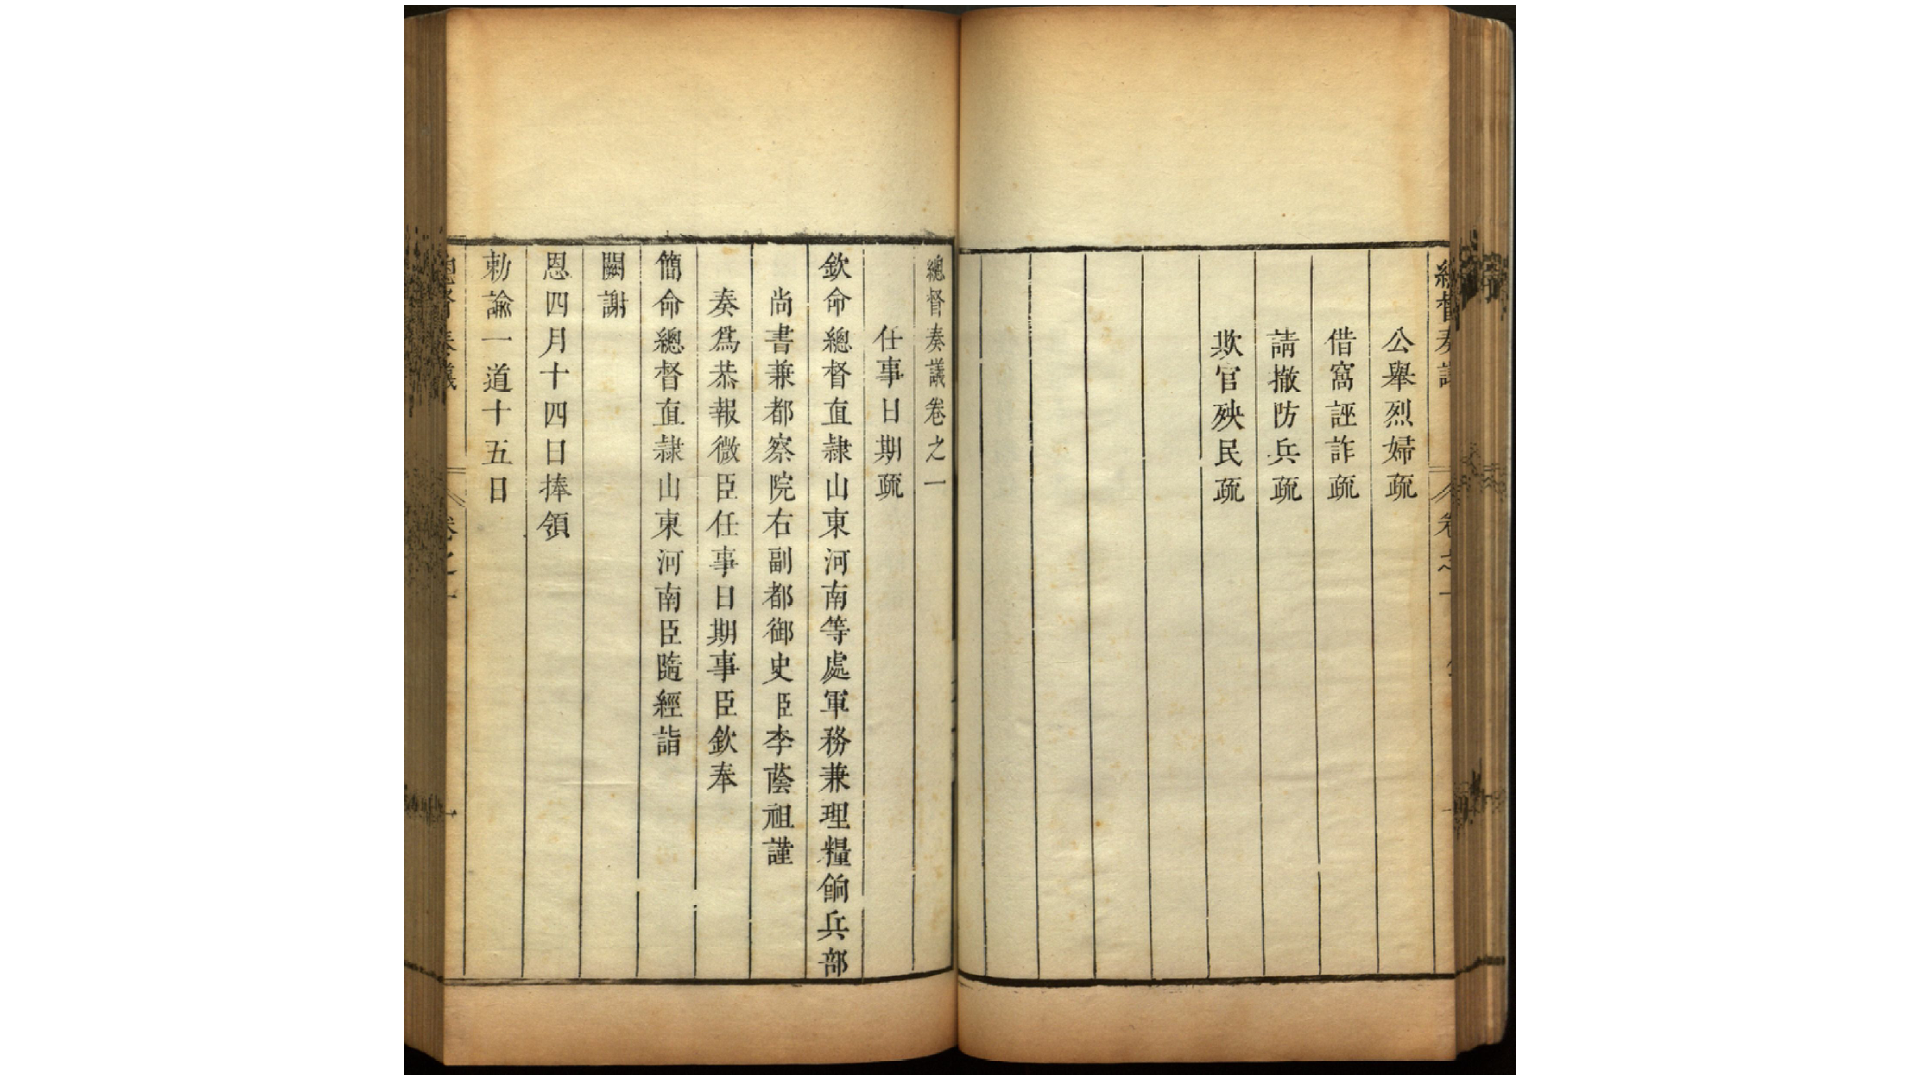 公舉烈婦疏
借窩誣詐疏
請撤防兵疏
欺官殃民疏
總督奏議卷之一
任事日期疏
欽命總督直隷山東河南等處軍務兼理糧餉兵部
尚書兼都察院右副都御史臣李蔭祖謹
奏爲恭報微臣任事日期事臣欽奉
簡命總督直隷山東河南臣隨經詣
闕謝
恩四月十四日捧領
勅諭一道十五日